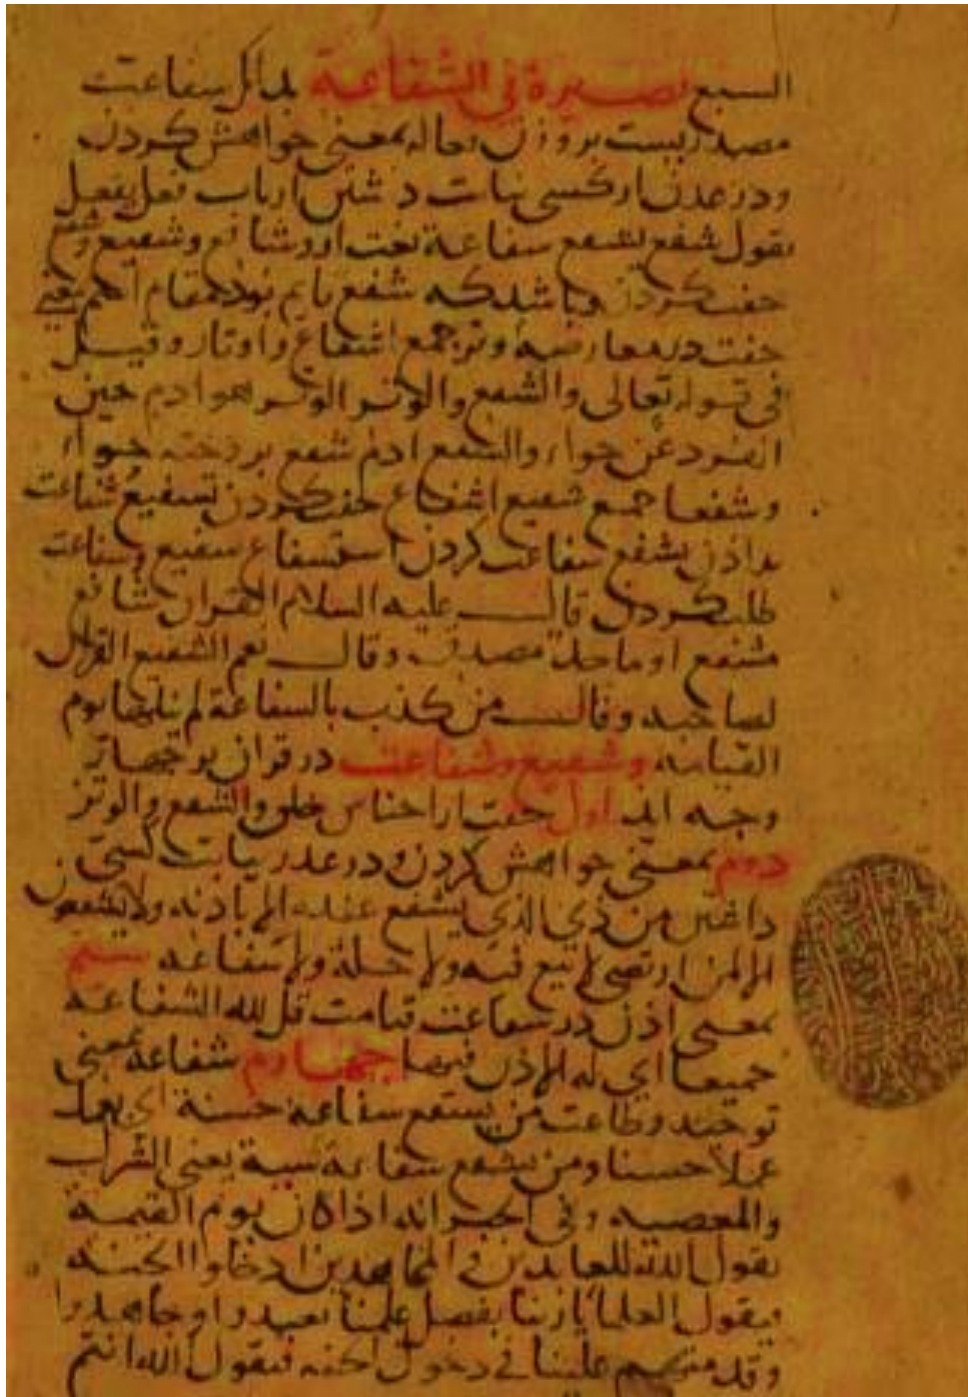 السمع بصيرة في الشفاعة بدانكه شفاعت
مصدريست بروزن فعاله بمعنى خواهش كردن
ودر عدن از كسى نيات دشتن از باب فعل يفعل
يقول شفع يشفع شفاعة فحت او وشافع وشفيع وشفع
جفت كردن وباشد كه شفع بايم بود مقام اسم يعني
جفت در معارضه وتر جمع اشفاع واوتار وقيل
في قوله تعالى والشفع والوتر الوتر هو ادم حين
انفرد عن حواء والشفع ادم شفع بزوجته حواء
وشفعا جمع شفيع اشفاع جفت كردن تشفيع شفاعت
دادن يشفع شفاعت كردن استشفاع شفيع وشفاعت
طلب كردن قال عليه السلام القران شافع
مشفع او ماحل مصدق وقال نعم الشفيع القران
لصاحبه وقال من كذب بالشفاعة لم ينلها يوم
القيامه وشفيع وشفاعت در قران بر چهار
وجه ايد اول جفت از اجناس خلق والشفع والوتر
دوم بمعنى خواهش كردن ودر عدر نيابت كسى
داشتن من ذي الذي يشفع عنده الا باذنه ولا يشفعون
الا لمن ارتضى لا بيع فيه ولا خلة ولا شفاعه سيم
بمعنى اذن در شفاعت قيامت قل لله الشفاعه
جميعا اي له الاذن فيها چهارم شفاعة بمعنى
توحيد وطاعت من يشفع شفاعة حسنة اي يعمل
عملا حسنا ومن يشفع شفاعة سيئة يعني الشراب
والمعصيه وفي الخبر انه اذا كان يوم القيمه
يقول الله للعابدين والمجاهدين ادخلوا الجنه
فيقول العلما يا ربنا بفضل علمنا تعبدوا وجاهدوا
وقد منهم علينا في دخول الجنه فيقول الله انتم